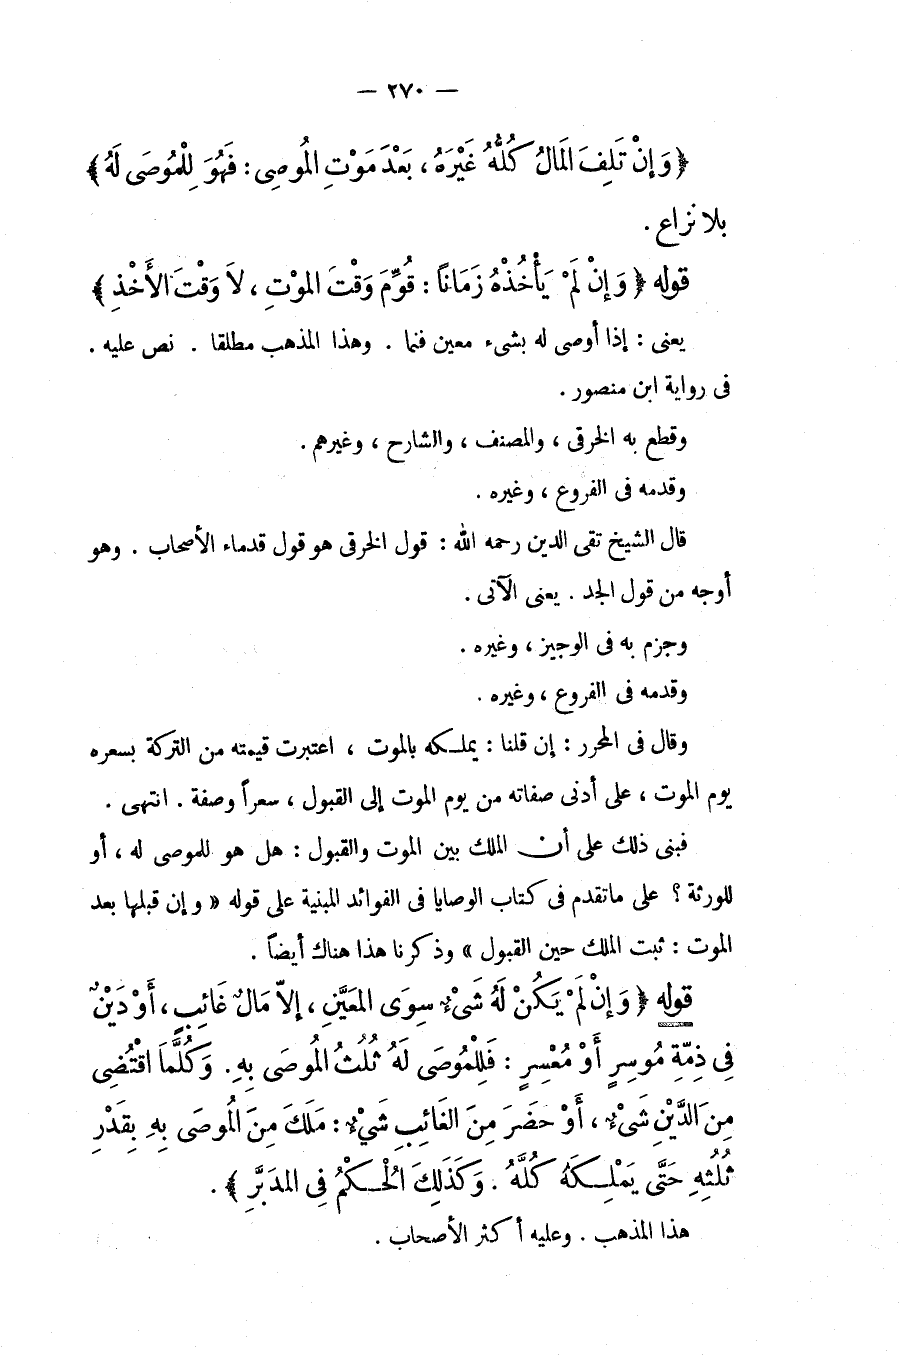 — ٢٧٠ —
﴿ وَإِنْ تَلِفَ الْمَالُ كُلُّهُ غَيْرَهُ ، بَعْدَ مَوْتِ الْمُوصِى : فَهُوَ لِلْمُوصَى لَهُ ﴾
بلا نزاع .
قوله ﴿ وَإِنْ لَمْ يَأْخُذْهُ زَمَانًا : قُوِّمَ وَقْتَ الموْتِ ، لاَ وَقْتَ الأَخْذِ ﴾
يعنى : إذا أوصى له بشىء معين فنما . وهذا المذهب مطلقا . نص عليه .
فى رواية ابن منصور .
وقطع به الخرقى ، والمصنف ، والشارح ، وغيرهم .
وقدمه فى الفروع ، وغيره .
قال الشيخ تقى الدين رحمه الله : قول الخرقى هو قول قدماء الأصحاب . وهو
أوجه من قول الجد . يعنى الآتى .
وجزم به فى الوجيز ، وغيره .
وقدمه فى الفروع ، وغيره .
وقال فى المحرر : إن قلنا : يملكه بالموت ، اعتبرت قيمته من التركة بسعره
يوم الموت ، على أدنى صفاته من يوم الموت إلى القبول ، سعراً وصفة . انتهى .
فبنى ذلك على أن الملك بين الموت والقبول : هل هو للموصى له ، أو
للورثة ؟ على ماتقدم فى كتاب الوصايا فى الفوائد المبنية على قوله « وإن قبلها بعد
الموت : ثبت الملك حين القبول » وذكرنا هذا هناك أيضاً .
قوله ﴿ وَإِنْ لَمْ يَكُنْ لَهُ شَىْءٌ سِوَى المعَيَّنِ ، إلاَّ مَالٌ غَائِبٌ ، أَوْ دَيْنٌ
فِى ذِمّةِ مُوسِرٍ أَوْ مُعْسِرٍ : فَلِلْمُوصَى لَهُ ثُلُثُ الْمُوصَى بِهِ . وَكُلَّمَا اقْتُضِى
مِنَ الدَّيْنِ شَىْءٌ ، أَوْ حَضَرَ مِنَ الغَائِبِ شَيْءٌ : مَلَكَ مِنَ الْمُوصَى بِهِ بِقَدْرِ
ثُلُثِهِ حَتَّى يَمْلِكَهُ كُلَّهُ . وَكَذَلِكَ الْحُكْمُ فِى المدَبَّرِ ﴾ .
هذا المذهب . وعليه أكثر الأصحاب .